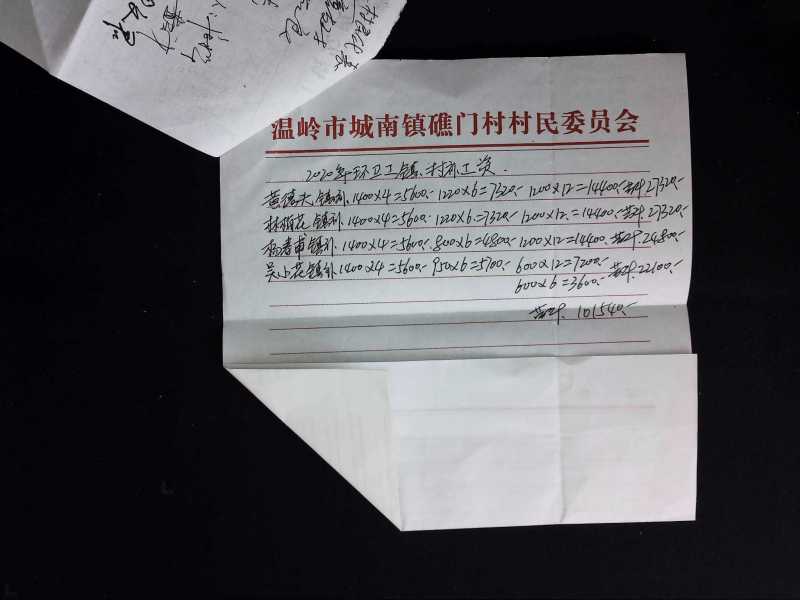 温岭市城南镇礁门村村民委员会
2020年环卫工镇、村补工资.
黄德夫镇补.1400×4=5600.- 1220×6=7320.- 1200×12=14400.- 共计27320.-
林梅花镇补.1400×4=5600.- 1220×6=7320.- 1200×12.=14400.- 共计.27320.-
杨春甫镇补.1400×4=5600.- 800×6=4800.- 1200×12=14400. 共计.24800.-
吴小花镇补1400×4=5600.- 950×6=5700.- 600×12=7200.- 共计.22100.-
600×6=3600.-
共计. 101540.-